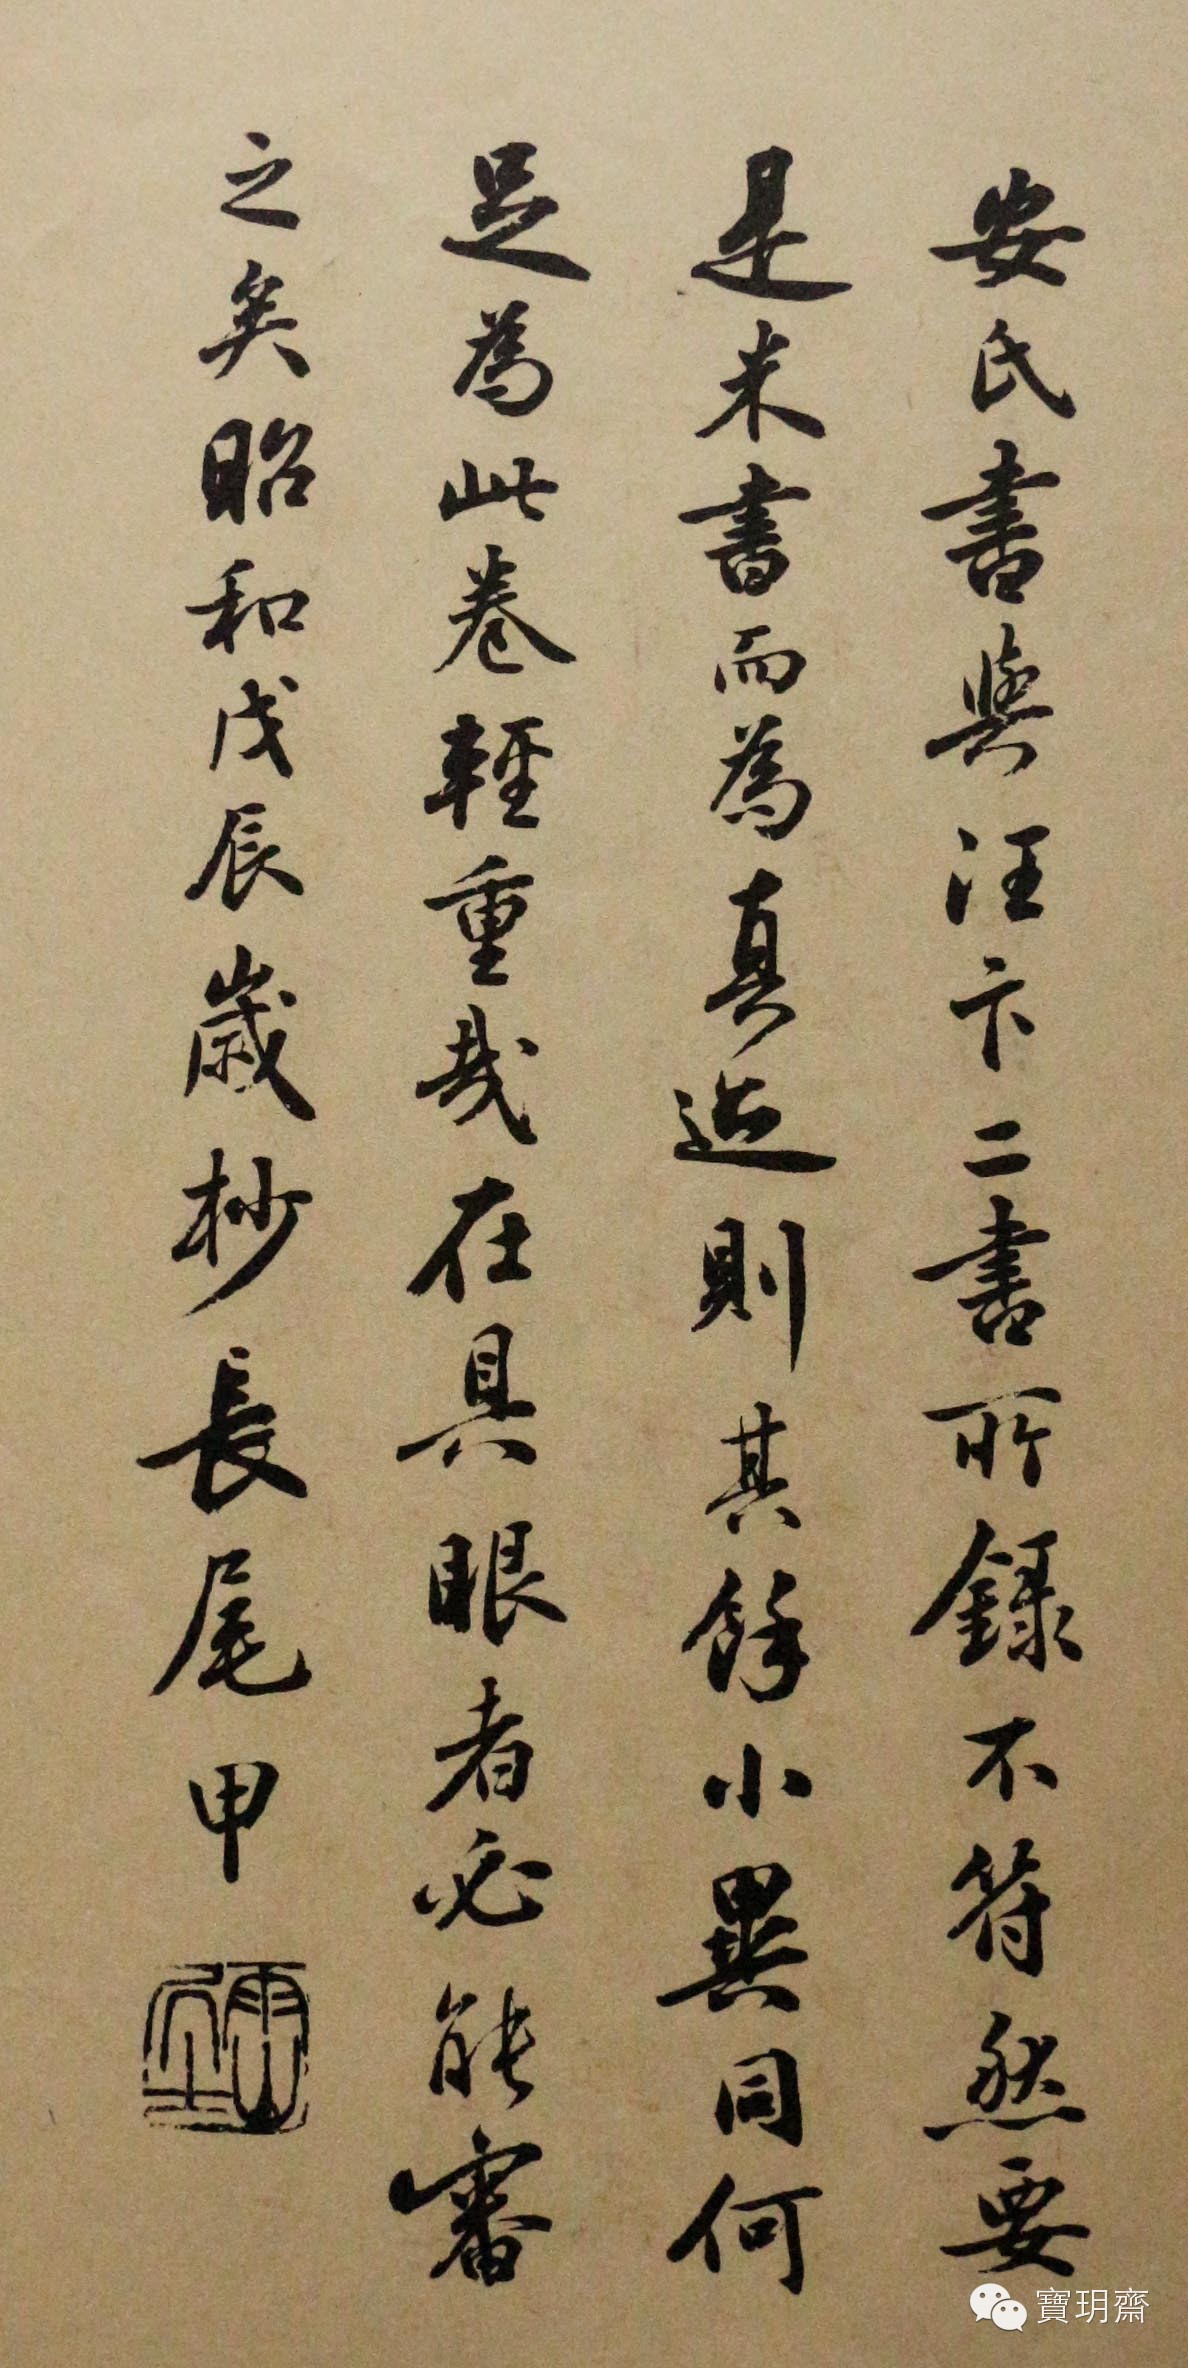 安氏書與汪卞二書所録不符然要
是米書而為真迹則其餘小異同何
足為此卷輕重哉在具眼者必能審
之矣昭和戊辰歲杪長尾甲
寶玥齋